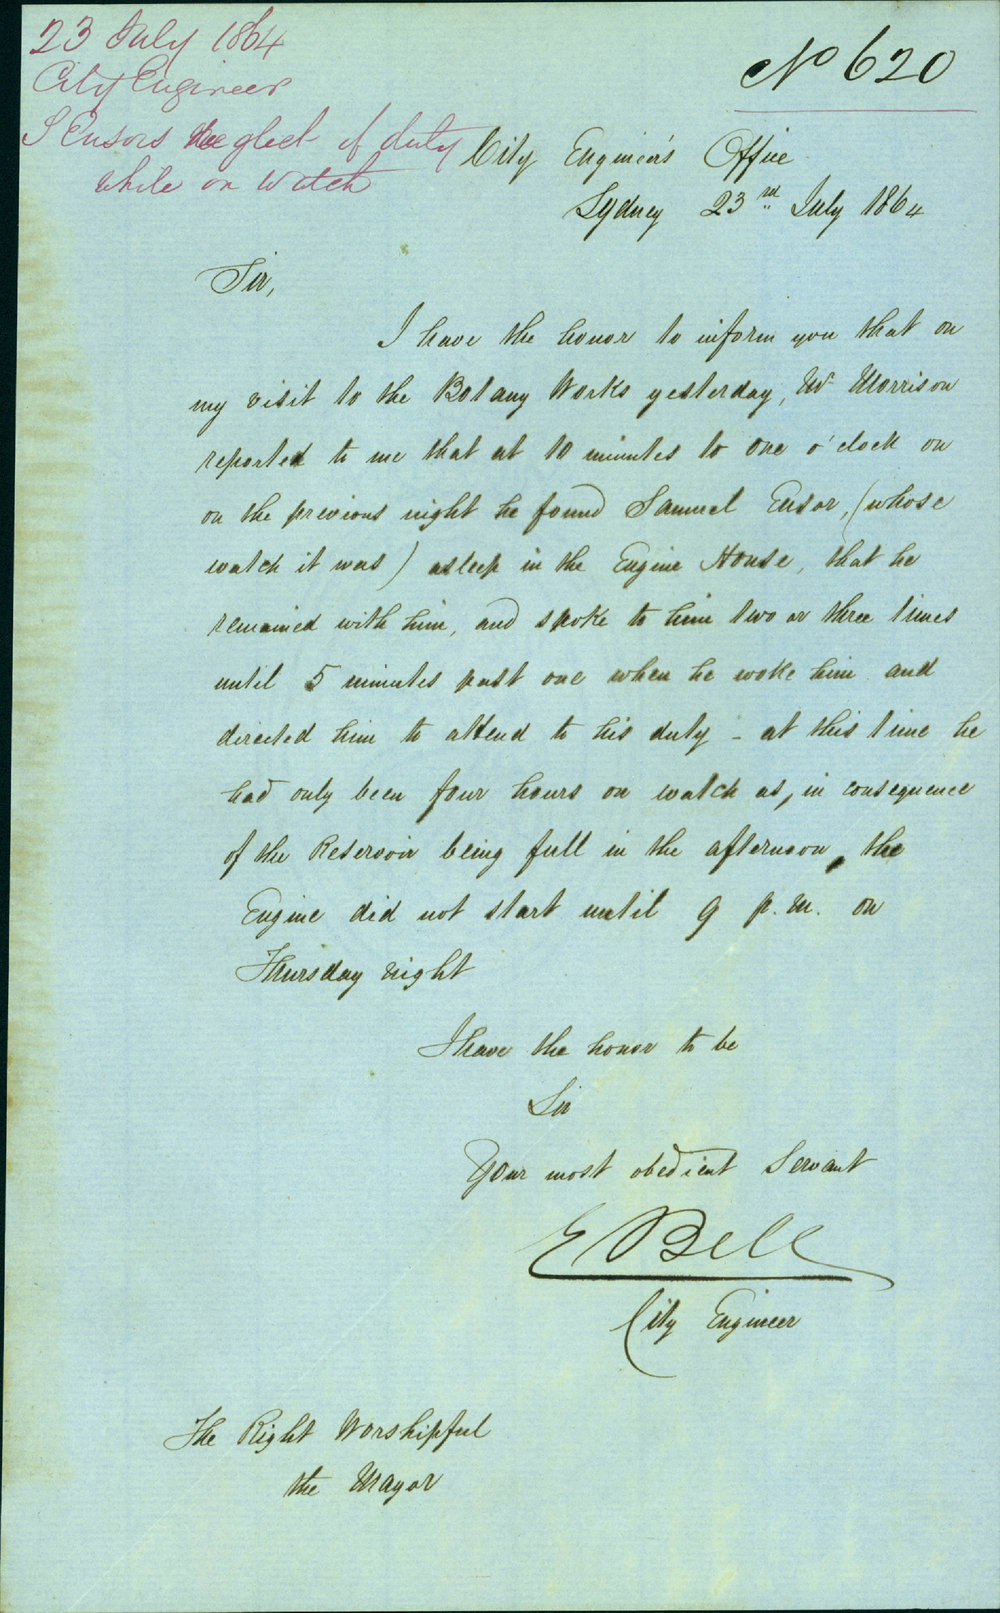 23 July 1864
City Engineer
S Ensors neglect of duty
while on watch
No 620
City Engineer's Office
Sydney 23rd July 1864
Sir,
I have the honor to inform you that on
my visit to the Botany Works yesterday, Mr Morrison
reported to me that at 10 minutes to one o'clock on
on the previous night he found Samuel Ensor, (whose
watch it was) asleep in the Engine House, that he
remained with him, and spoke to him two or three times
until 5 minutes past one when he woke him and
directed him to attend to his duty - at this time he
had only been four hours on watch as, in consequence
of the Reservoir being full in the afternoon, the
Engine did not start until 9 p.m. on
Thursday night
I have the honor to be
Sir
Your most obedient Servant
E Bell
City Engineer
The Right Worshipful
the Mayor